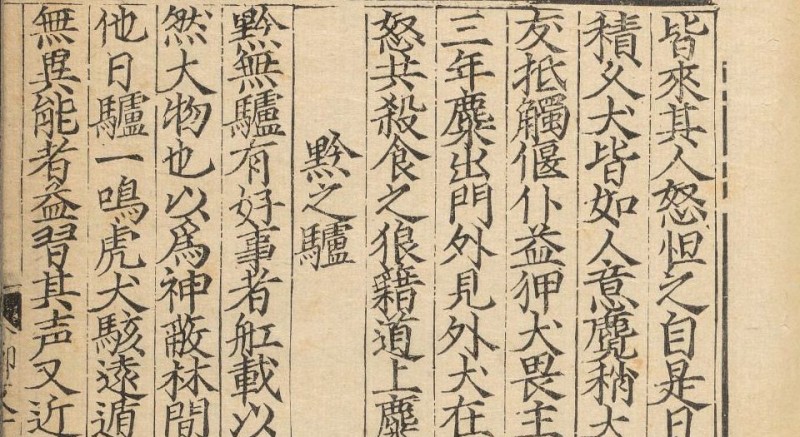 皆來其人怒怛之自是日
積久犬皆如人意麑稍大
友抵觸偃仆益狎犬畏主
三年麋出門外見外犬在
怒共殺食之狼籍道上麋
黔之驢
黔無驢有好事者舡載以
然大物也以爲神蔽林間
他日驢一鳴虎犬駭遠遁
無異能者益習其声又近